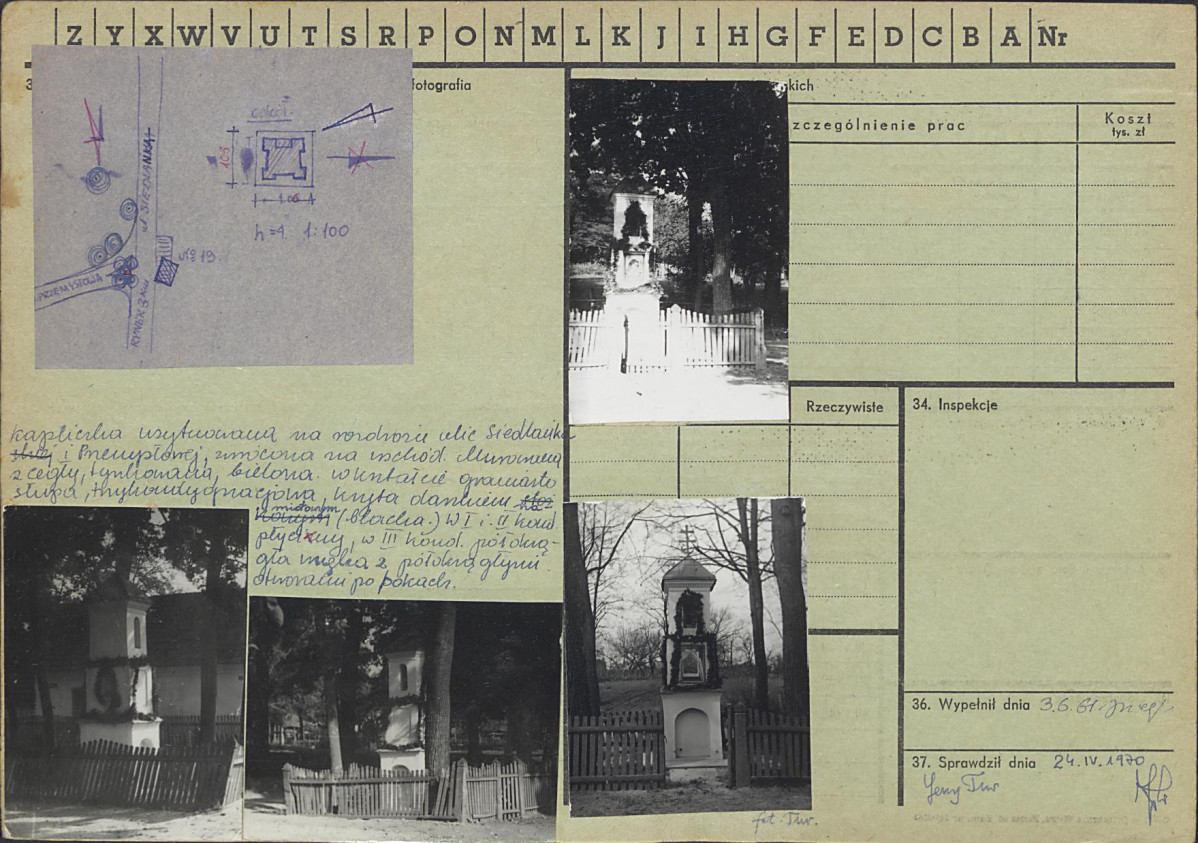 Z Y X W V U T S R P O N M L K J I H G F E D C B A Nr
fotografia
kich
zczególnienie prac
Koszt
tys. zł
cokół
103
1.00
h=4. 1:100
ul. SIEDLANKA
No 19.
PRZEMYSŁOWA
RYNEK 3 KM
Rzeczywiste
34. Inspekcje
Kapliczka usytuowana na rozdrożu ulic Siedlanka
i Przemysłowej, zwrócona na wschód. Murowana
z cegły, tynkowana, bielona. w kształcie graniasto
słupa, trzykondygnacjowa, kryta daszkiem
miowym
(blacha.) W I i II kond
płyciny, w III kond. półokrą-
gła wnęka z półokrągłymi
otworami po bokach.
36. Wypełnił dnia 3.6.61.
37. Sprawdził dnia 24.IV.1970
Jerzy Tur
fot. Tur.